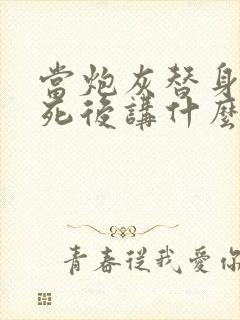 當炮灰替身
死後講什麼
青春從我愛你